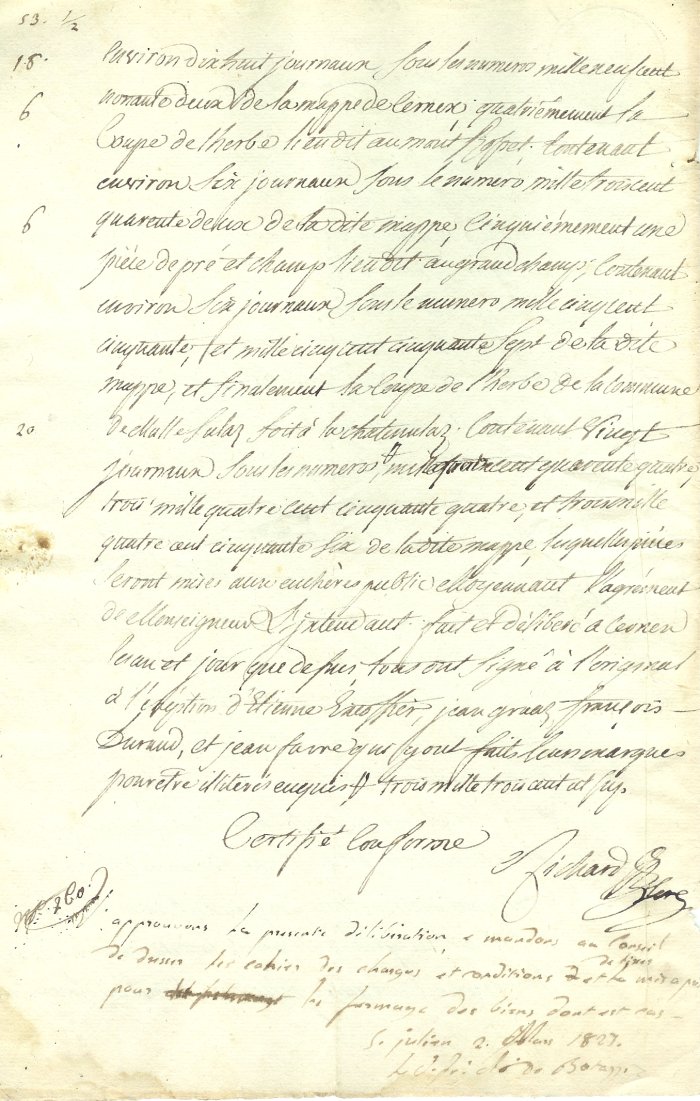 53. 1/2
18. environ dix huit journaux sous les numeros mille neuf cent
6 nonante deux de la mappe de Cernex, quatriémement la
Coupe de l'herbe lieu dit au mont Contenant
environ Six journaux sous le numero mille trois cent
6 quarente deux de la dite mappe, Cinquiémement une
piéce de pré et champ lieu dit au grand champ, Contenant
environ Six journaux sous le numero mille cinq cent
cinquante, et mille cinq cent cinquante sept de la dite
mappe, et finalement la Coupe de l'herbe de la Commune
20 de Contenant vingt
journaux sous les numeros quarente quatre,
trois mille quatre cent cinquante quatre, et trois mille
quatre cent cinquante six de la dite mappe, lesquelles piéces
seront mises aux enchères public Moyennant l'agrément
de Monseigneur L'jntendant. fait et délibéré à Cernex
les an et jour que dessus, tous ont signé à l'original
à l'éxception d'Etienne jean françois
Durand, et jean favre qui y ont faits leurs marques
pour être illiterés enquis # trois mille trois cent et six.
Certifié Conforme
Richard
approuvons la presente délibération, e mandons au Conseil
de dresser les cahier des charges et conditions
pour les fermage des biens dont est cas
St julien 2. Mars 1827.